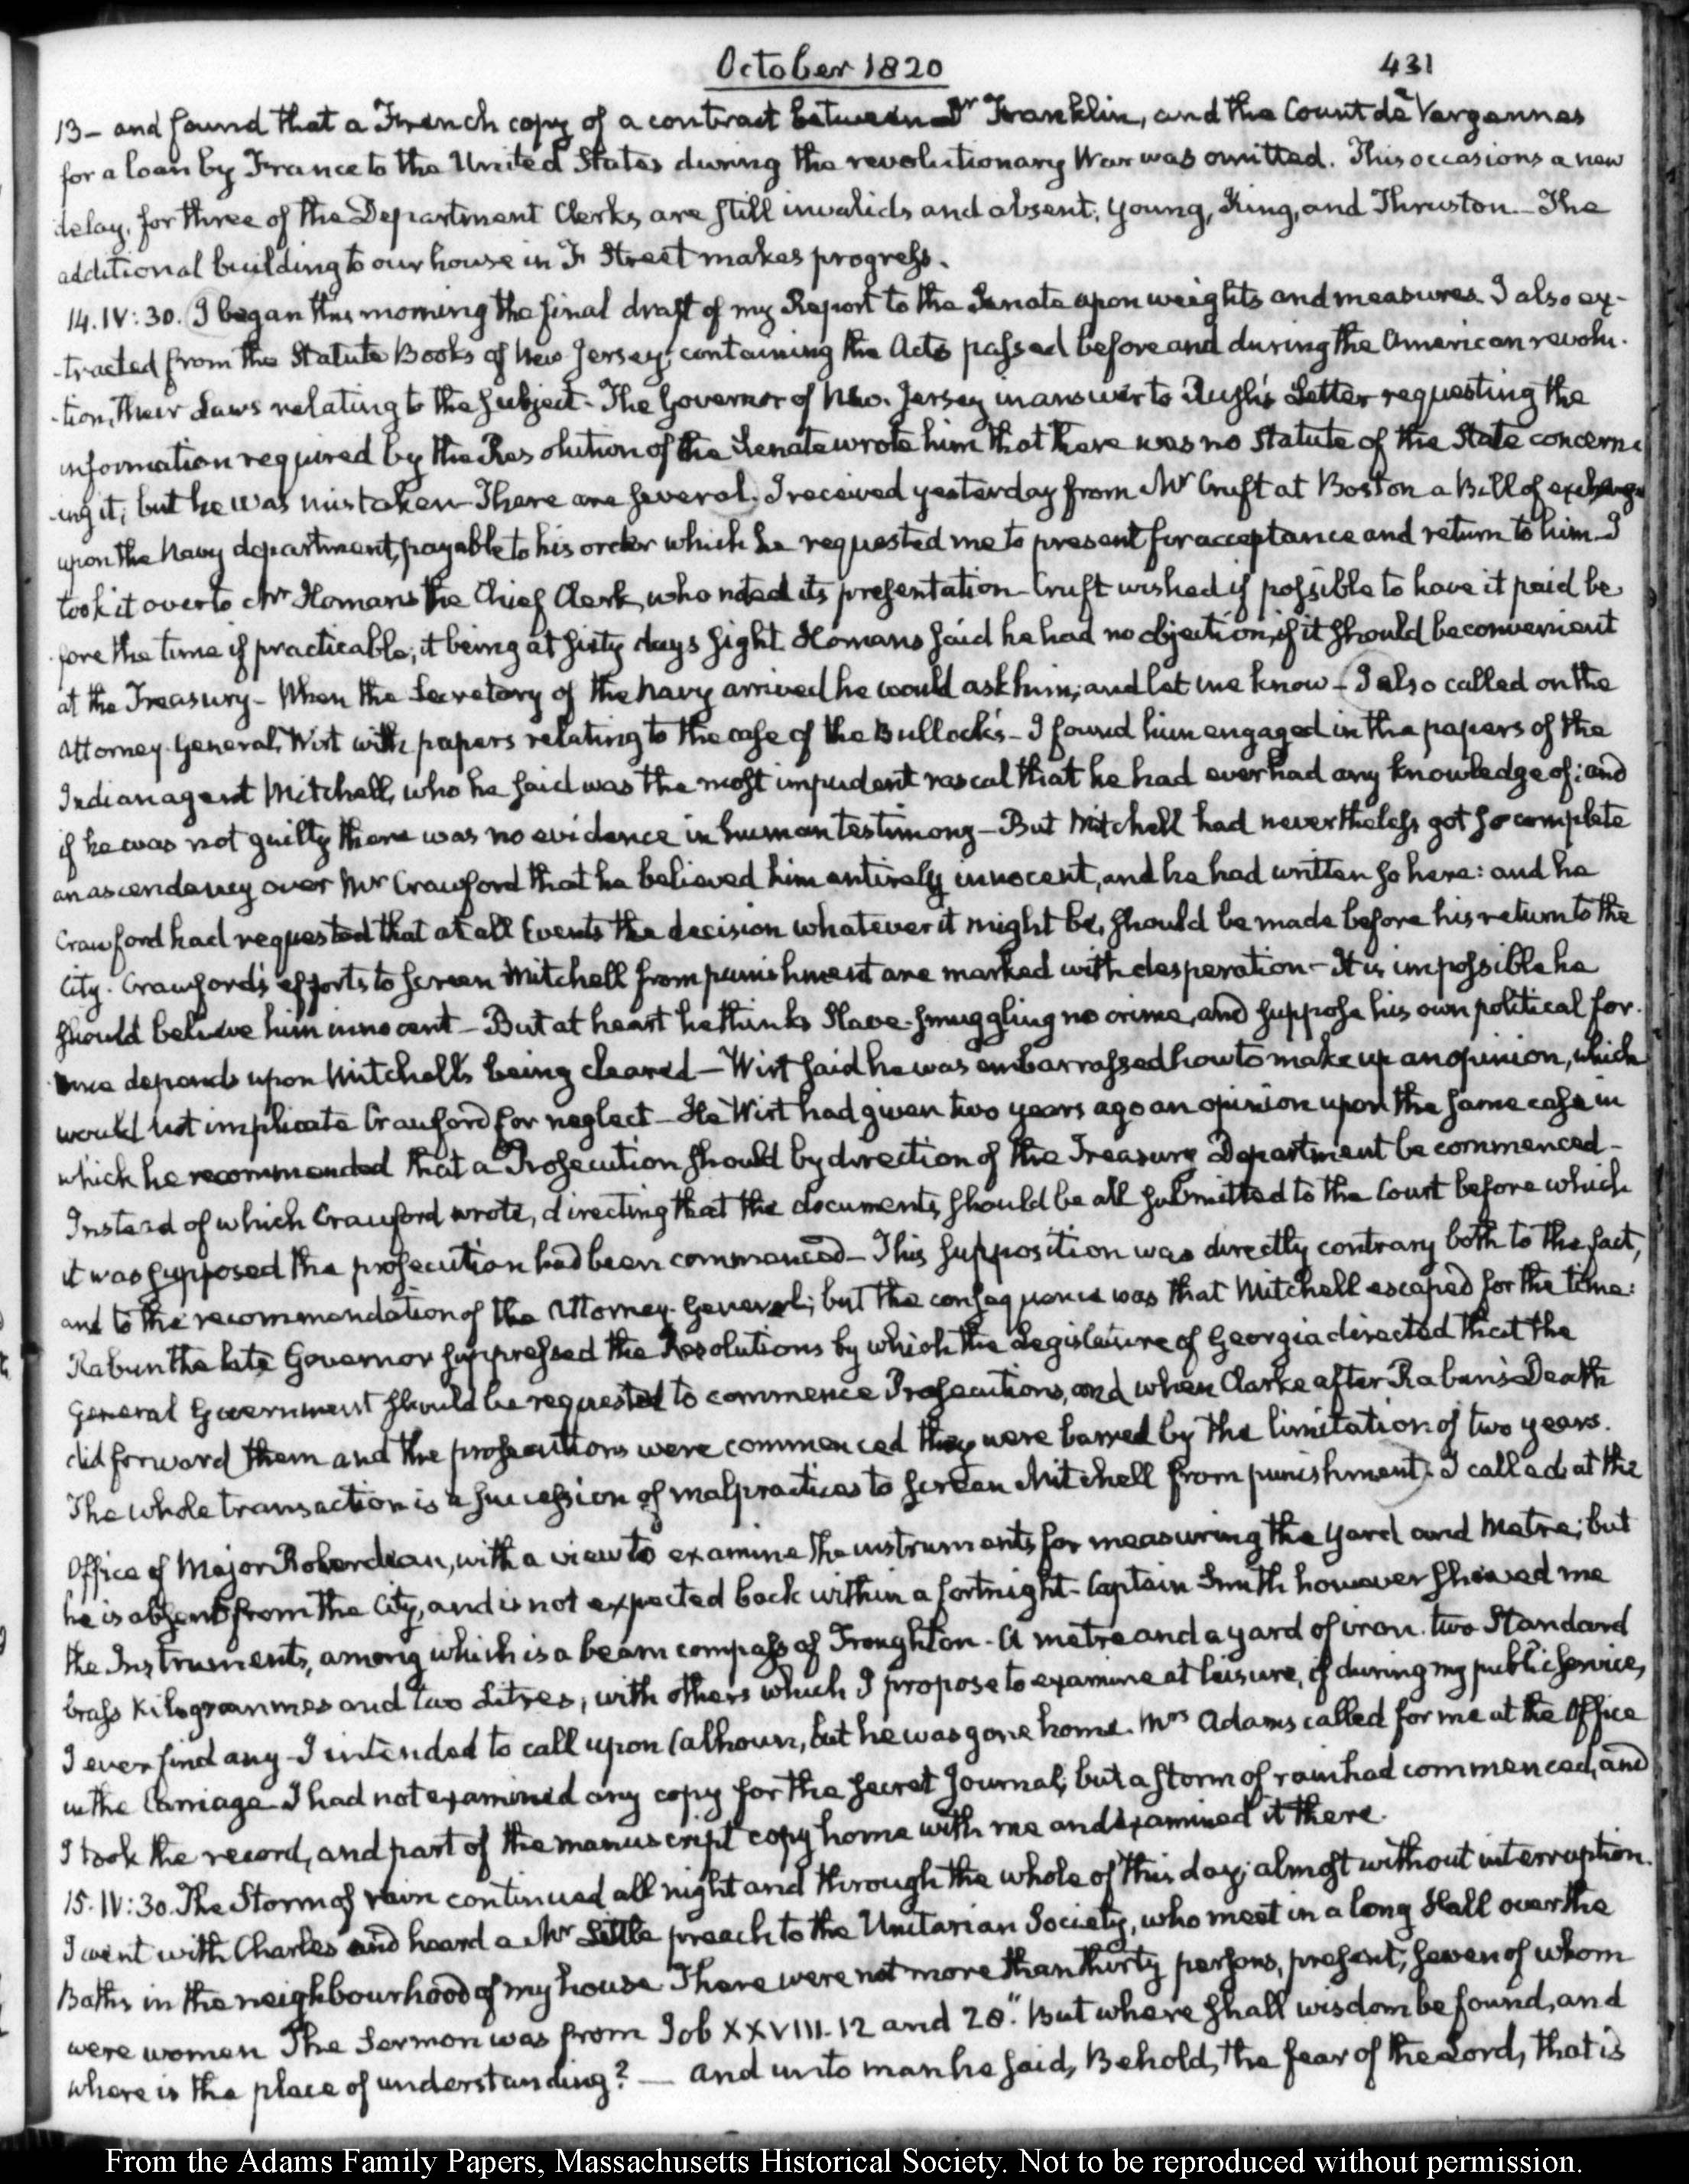 October 1820
431
13 – and found that a French copy of a contract between Dr Franklin, and the Count de Vergennes
for a loan by France to the United States during the revolutionary War was omitted. This occasions a new
delay, for three of the Department Clerks are still invalids and absent, Young, King, and Thruston – The
additional building to our house in F Street makes progress.
14. IV: 30. I began this morning the final draft of my Report to the Senate upon weights and measures. I also ex-
-tracted from the Statute Books of New-Jersey, containing the Acts passed before and during the American revolu-
-tion, their Laws relating to the subject – The Governor of New-Jersey in answer to Rush's Letter requesting the
information required by the Resolution of the Senate wrote him that there was no Statute of the State concern-
-ing it; but he was mistaken – There are several. I received yesterday from Mr Cruft at Boston a Bill of exchange
upon the Navy department, payable to his order which he requested me to present for acceptance and return to him – I
took it over to Mr Homans the Chief Clerk, who noted its presentation – Cruft wished if possible to have it paid be-
-fore the time if practicable, it being at sixty days sight. Homans said he had no objection, if it should be convenient
at the Treasury – When the Secretary of the Navy arrived he would ask him; and let me know – I also called on the
Attorney-General, Wirt with papers relating to the case of the Bullock's – I found him engaged in the papers of the
Indian agent Mitchell, who he said was the most impudent rascal that he had ever had any knowledge of: and
if he was not guilty there was no evidence in human testimony – But Mitchell had nevertheless got so complete
an ascendency over Mr Crawford that he believed him entirely innocent, and he had written so here: and he
Crawford had requested that at all Events the decision whatever it might be, should be made before his return to the
City. Crawford's efforts to screen Mitchell from punishment are marked with desperation – It is impossible he
should believe him innocent – But at heart he thinks Slave-smuggling no crime, and suppose his own political for-
-tune depends upon Mitchell's being cleared – Wirt said he was embarrassed how to make up an opinion, which
would not implicate Crawford for neglect – He Wirt had given two years ago an opinion upon the same case in
which he recommended that a Prosecution should by direction of the Treasury Department be commenced –
Instead of which Crawford wrote, directing that the documents should be all submitted to the Court before which
it was supposed the prosecution had been commenced – This supposition was directly contrary both to the fact,
and to the recommendation of the Attorney-General; but the consequence was that Mitchell escaped for the time:
Rabun the late Governor suppressed the Resolutions by which the Legislature of Georgia directed that the
General Government should be requested to commence Prosecutions, and when Clarke after Rabun's Death
did forward them and the prosecutions were commenced they were barred by the limitation of two years.
The whole transaction is a succession of malpractices to screen Mitchell from punishment. I called at the
Office of Major Roberdeau, with a view to examine the instruments for measuring the yard and Metre; but
he is absent from the City, and is not expected back within a fortnight – Captain Smith however shewed me
the Instruments, among which is a beam compass of Troughton – A metre and a yard of iron. two Standard
brass Kilogrammes and two Litres, with others which I propose to examine at leisure, if during my public service,
I ever find any – I intended to call upon Calhoun, but he was gone home. Mrs Adams called for me at the Office
in the Carriage – I had not examined any copy for the secret Journal, but a storm of rain had commenced, and
I took the record, and part of the manuscript copy home with me and examined it there.
15. IV: 30. The Storm of rain continued all night and through the whole of this day; almost without interruption.
I went with Charles and heard a Mr Little preach to the Unitarian Society, who meet in a long Hall over the
Baths in the neighbourhood of my house. There were not more than thirty persons, present, seven of whom
were women. The Sermon was from Job XXVIII. 12 and 28. "But where shall wisdom be found, and
where is the place of understanding? — and unto man he said, Behold, the fear of the Lord, that is
From the Adams Family Papers, Massachusetts Historical Society. Not to be reproduced without permission.